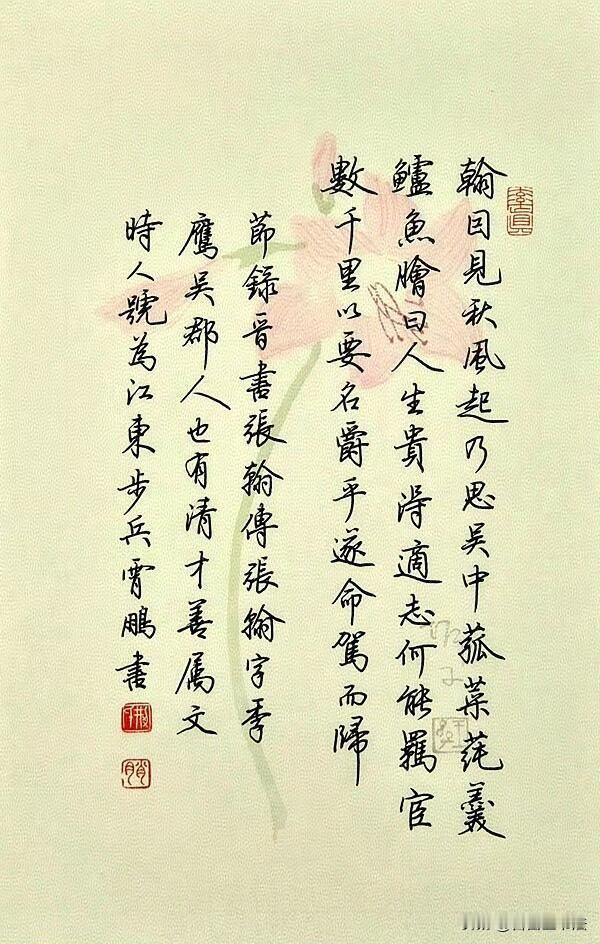 翰因見秋風起乃思吳中菰菜蓴羹
鱸魚膾曰人生貴得適志何能羈宦
數千里以要名爵乎遂命駕而歸
節錄晉書張翰傳張翰字季
鷹吳郡人也有清才善属文
時人號為江東步兵霄鵬書